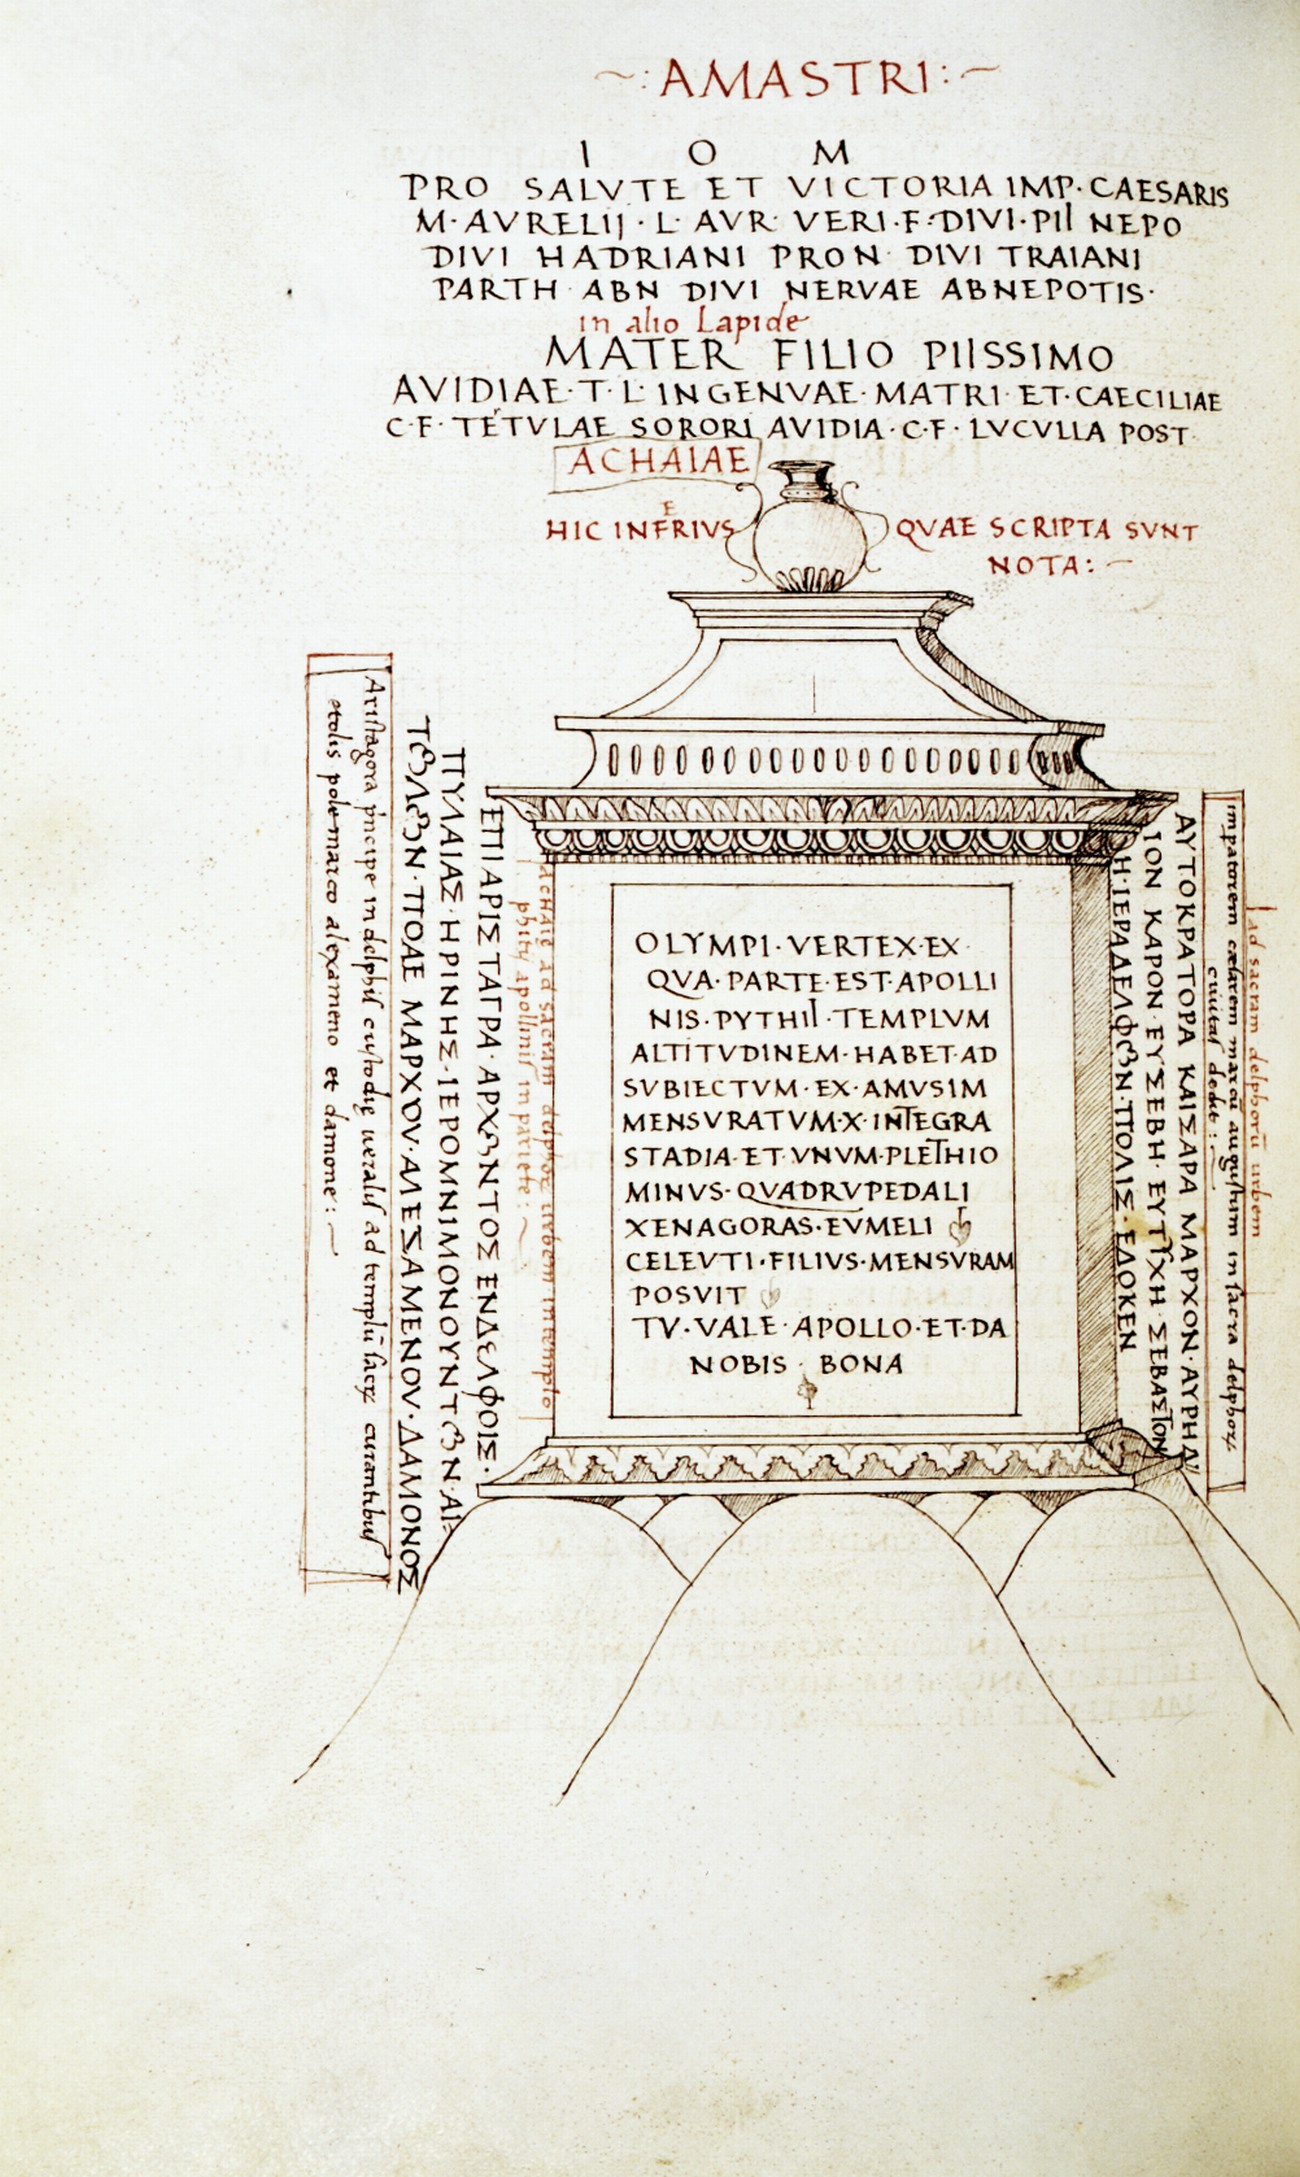 ~:AMASTRI:~
I O M
PRO SALVTE ET VICTORIA IMP·CAESARIS
M·AVRELIJ·L·AVR·VERI·F·DIVI·PII NEPO
DIVI HADRIANI PRON DIVI TRAIANI
PARTH ABN DIVI NERVAE ABNEPOTIS·
in alio Lapide
MATER FILIO PIISSIMO
AVIDIAE·T·L·INGENVAE·MATRI·ET·CAECILIAE
C·F·TETVLAE SORORI AVIDIA·C·F·LVCVLLA POST
ACHAIAE
HIC INFERIVS QVAE SCRIPTA SVNT
NOTA:~
Aristagora pncipe in delphis custodię ueralis ad templū sacę curantibus
etolis polemarco alexameno et damone:~
ΤΩΛΩΝ·ΠΟΛΕ ΜΑΡΧΟΥ·ΑΛΕΞΑΜΕΝΟΥ·ΔΑΜΟΝΟΣ
ΠΥΛΑΙΑΣ·ΗΡΙΝΗΣ·ΙΕΡΟΜΝΙΜΟΝΟΥΝΤΩΝ·ΑΙ
ΕΠΙ ΑΡΙΣΤΑΓΡΑ·ΑΡΧΩΝΤΟΣ ΕΝΔΕΛΦΟΙΣ·
phitij apollinis in pariete:~
OLYMPI·VERTEX·EX·
QVA·PARTE·EST·APOLLI
NIS·PYTHII·TEMPLVM
ALTITVDINEM·HABET·AD
SVBIECTVM·EX·AMVSIM
MENSVRATVM·X·INTEGRA
STADIA·ET·VNVM·PLETHIO
MINVS·QVADRVPEDALI
XENAGORAS·EVMELI
CELEVTI·FILIVS·MENSVRAM
POSVIT
TV·VALE·APOLLO·ET·DA
NOBIS·BONA
ad sacram delphorū urbem
impatorem cęsarem marcū augustum in sacra delphoꝝ
ciuitas dedit:~
ΑΥΤΟΚΡΑΤΟΡΑ ΚΑΙΣΑΡΑ ΜΑΡΧΟΝ·ΑΥΡΗΛ
ΙΟΝ ΚΑΡΟΝ·ΕΥΣΕΒΗ·ΕΥΤΥΧΗ·ΣΕΒΑΣΤΟΝ
Η·ΙΕΡΑΔΕΛΦΩΝ·ΠΟΛΙΣ·ΕΔΟΚΕΝ